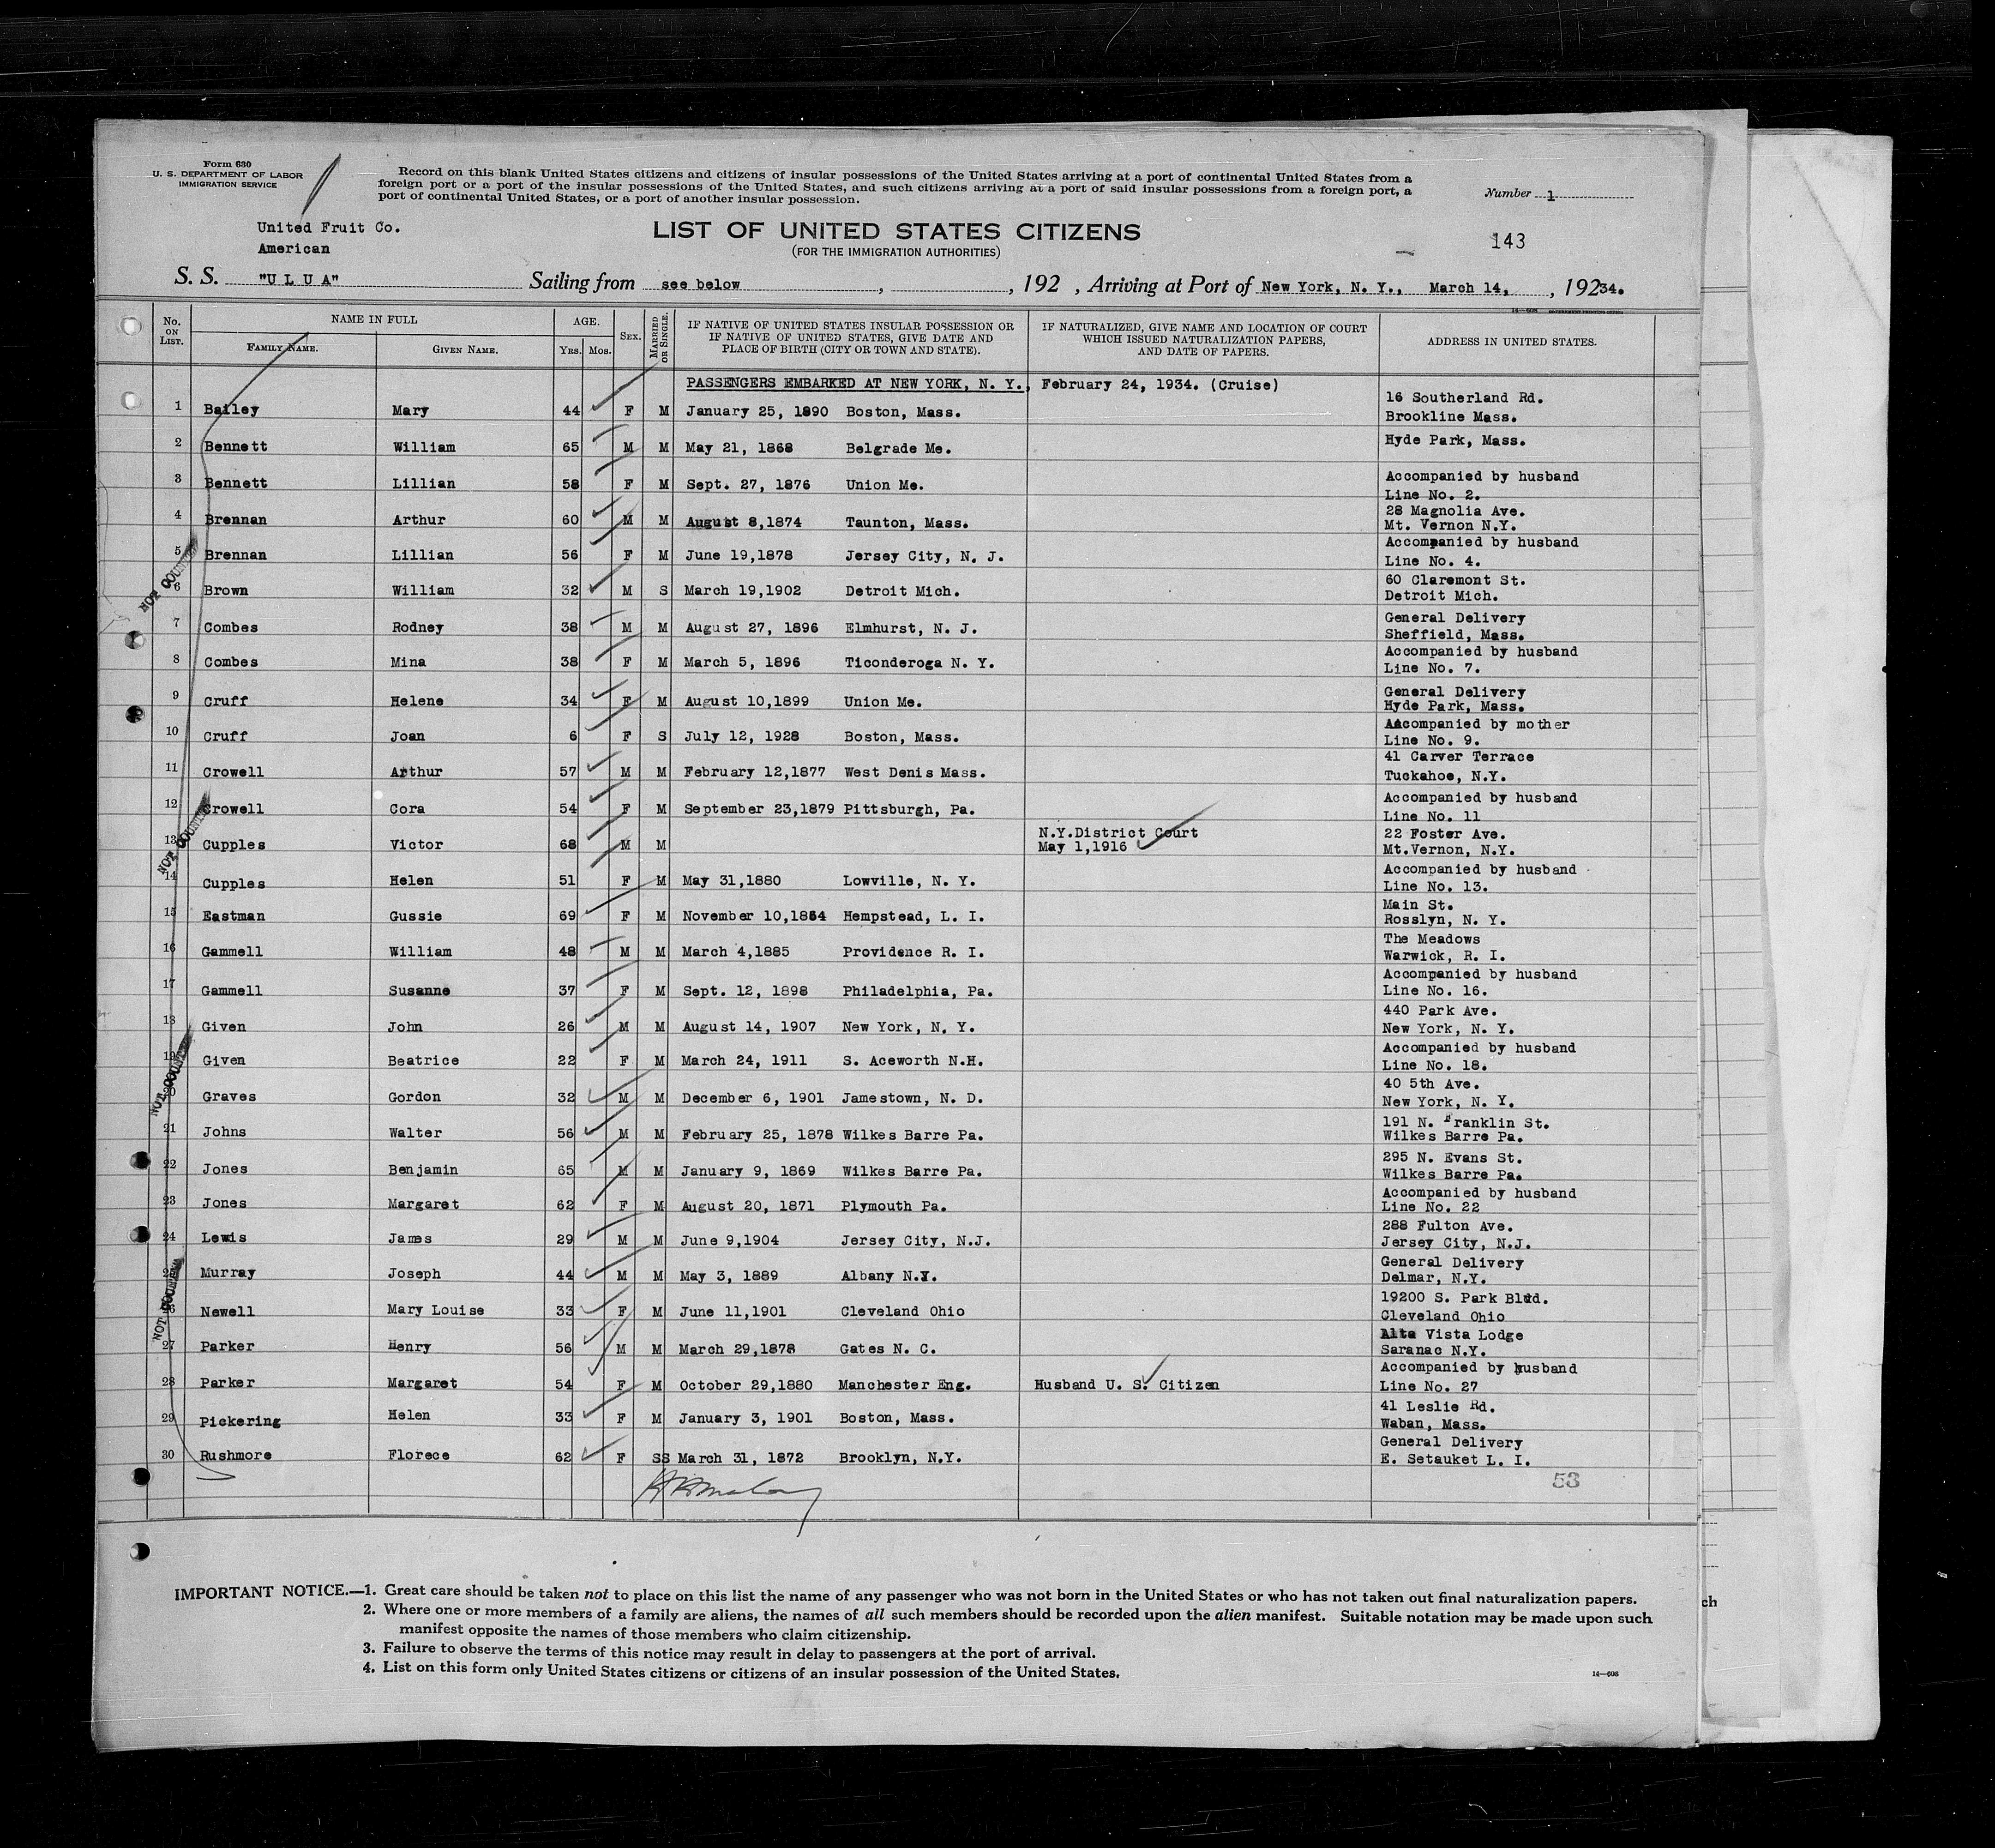 Form 630
U. S. DEPARTMENT OF LABOR
IMMIGRATION SERVICE
Record on this blank United States citizens and citizens of insular possessions of the United States arriving at a port of continental United States from a
foreign port or a port of the insular possessions of the United States, and such citizens arriving at a port of said insular possessions from a foreign port, a
port of continental United States, or a port of another insular possession.
Number 1
United Fruit Co.
American
LIST OF UNITED STATES CITIZENS
(FOR THE IMMIGRATION AUTHORITIES)
143
S. S. "U L U A" Sailing from see below, , 192 , Arriving at Port of New York, N. Y., March 14, , 19234.
No. ON LIST. NAME IN FULL FAMILY NAME. GIVEN NAME. AGE. YRS. MOS. SEX. MARRIED OR SINGLE. IF NATIVE OF UNITED STATES INSULAR POSSESSION OR IF NATIVE OF UNITED STATES, GIVE DATE AND PLACE OF BIRTH (CITY OR TOWN AND STATE). IF NATURALIZED, GIVE NAME AND LOCATION OF COURT WHICH ISSUED NATURALIZATION PAPERS, AND DATE OF PAPERS. ADDRESS IN UNITED STATES.
PASSENGERS EMBARKED AT NEW YORK, N. Y., February 24, 1934. (Cruise)
1 Bailey Mary 44 F M January 25, 1890 Boston, Mass. 16 Southerland Rd. Brookline Mass.
2 Bennett William 65 M M May 21, 1868 Belgrade Me. Hyde Park, Mass.
3 Bennett Lillian 58 F M Sept. 27, 1876 Union Me. Accompanied by husband Line No. 2.
4 Brennan Arthur 60 M M August 8,1874 Taunton, Mass. 28 Magnolia Ave. Mt. Vernon N.Y.
5 Brennan Lillian 56 F M June 19,1878 Jersey City, N. J. Accompanied by husband Line No. 4.
6 Brown William 32 M S March 19,1902 Detroit Mich. 60 Claremont St. Detroit Mich.
7 Combes Rodney 38 M M August 27, 1896 Elmhurst, N. J. General Delivery Sheffield, Mass.
8 Combes Mina 38 F M March 5, 1896 Ticonderoga N. Y. Accompanied by husband Line No. 7.
9 Cruff Helene 34 F M August 10,1899 Union Me. General Delivery Hyde Park, Mass.
10 Cruff Joan 6 F S July 12, 1928 Boston, Mass. Aacompanied by mother Line No. 9.
11 Crowell Arthur 57 M M February 12,1877 West Denis Mass. 41 Carver Terrace Tuckahoe, N.Y.
12 Crowell Cora 54 F M September 23,1879 Pittsburgh, Pa. Accompanied by husband Line No. 11
13 Cupples Victor 68 M M N.Y.District Court May 1,1916 22 Foster Ave. Mt.Vernon, N.Y.
14 Cupples Helen 51 F M May 31,1880 Lowville, N. Y. Accompanied by husband Line No. 13.
15 Eastman Gussie 69 F M November 10,1864 Hempstead, L. I. Main St. Rosslyn, N. Y.
16 Gammell William 48 M M March 4,1885 Providence R. I. The Meadows Warwick, R. I.
17 Gammell Susanne 37 F M Sept. 12, 1898 Philadelphia, Pa. Accompanied by husband Line No. 16.
18 Given John 26 M M August 14, 1907 New York, N. Y. 440 Park Ave. New York, N. Y.
19 Given Beatrice 22 F M March 24, 1911 S. Aceworth N.H. Accompanied by husband Line No. 18.
Graves Gordon 32 M M December 6, 1901 Jamestown, N. D. 40 5th Ave. New York, N. Y.
21 Johns Walter 56 M M February 25, 1878 Wilkes Barre Pa. 191 N. Franklin St. Wilkes Barre Pa.
22 Jones Benjamin 65 M M January 9, 1869 Wilkes Barre Pa. 295 N. Evans St. Wilkes Barre Pa.
23 Jones Margaret 62 F M August 20, 1871 Plymouth Pa. Accompanied by husband Line No. 22
24 Lewis James 29 M M June 9,1904 Jersey City, N.J. 288 Fulton Ave. Jersey City, N.J.
25 Murray Joseph 44 M M May 3, 1889 Albany N.Y. General Delivery Delmar, N.Y.
26 Newell Mary Louise 33 F M June 11,1901 Cleveland Ohio 19200 S. Park Blvd. Cleveland Ohio
27 Parker Henry 56 M M March 29,1878 Gates N. C. Alta Vista Lodge Saranac N.Y.
28 Parker Margaret 54 F M October 29,1880 Manchester Eng. Husband U. S. Citizen Accompanied by husband Line No. 27
29 Pickering Helen 33 F M January 3, 1901 Boston, Mass. 41 Leslie Rd. Waban, Mass.
30 Rushmore Florece 62 F SS March 31, 1872 Brooklyn, N.Y. General Delivery E. Setauket L. I.
53
NOT COUNTED
NOT COUNTED
NOT COUNTED
NOT COUNTED
IMPORTANT NOTICE.—1. Great care should be taken not to place on this list the name of any passenger who was not born in the United States or who has not taken out final naturalization papers.
2. Where one or more members of a family are aliens, the names of all such members should be recorded upon the alien manifest. Suitable notation may be made upon such
manifest opposite the names of those members who claim citizenship.
3. Failure to observe the terms of this notice may result in delay to passengers at the port of arrival.
4. List on this form only United States citizens or citizens of an insular possession of the United States.
14—608
ch